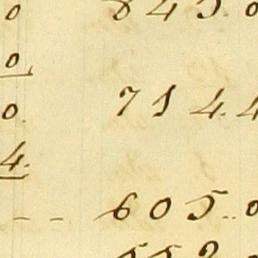 0 843. 0
0
0. 714. 4
4.
-- 605.. 0
552. 0